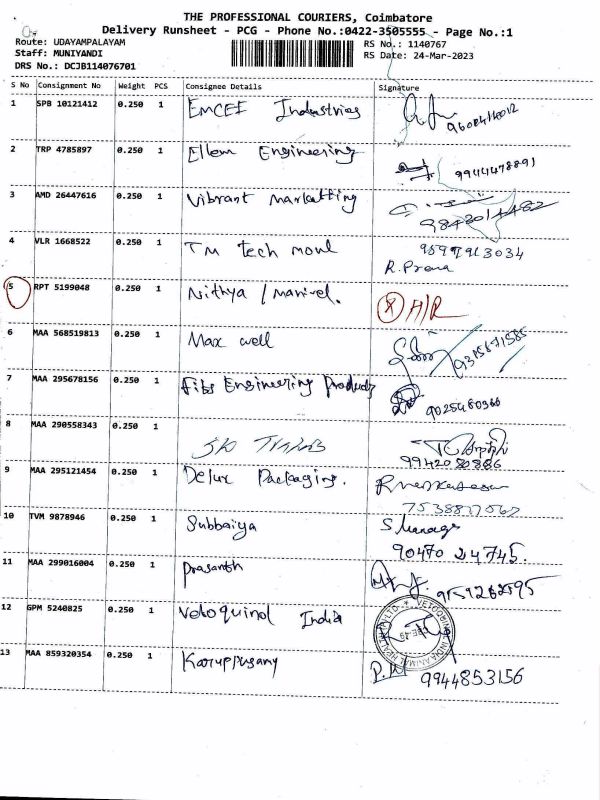 THE PROFESSIONAL COURIERS, Coimbatore
Delivery Runsheet - PCG - Phone No.:0422-3505555 - Page No.:1
Route: UDAYAMPALAYAM RS No.: 1140767
Staff: MUNIYANDI RS Date: 24-Mar-2023
DRS No.: DCJB114076701
S No Consignment No Weight PCS Consignee Details Signature
1 SPB 10121412 0.250 1 EMCEE Industries
2 TRP 4785897 0.250 1 Ellem Engineering 9944478891
3 AMD 26447616 0.250 1 Vibrant marketting 9843014482
4 VLR 1668522 0.250 1 TM tech moul
R. Prema
5 RPT 5199048 0.250 1 Nithya / Manivel.
6 MAA 568519813 0.250 1 Max well 9315671585
7 MAA 295678156 0.250 1 Fibs Engineering Products 9025480366
8 MAA 290558343 0.250 1
9 MAA 295121454 0.250 1 Delux Packaging.
10 TVM 9878946 0.250 1 Subbaiya
90470 24745.
11 MAA 299016004 0.250 1 Prasanth
12 GPM 5240825 0.250 1 Vetoquinol India
13 MAA 859320354 0.250 1 Karuppusamy 9944853156